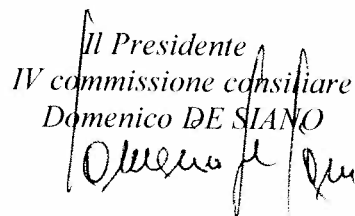 Il Presidente
IV commissione consiliare
Domenico DE SIANO